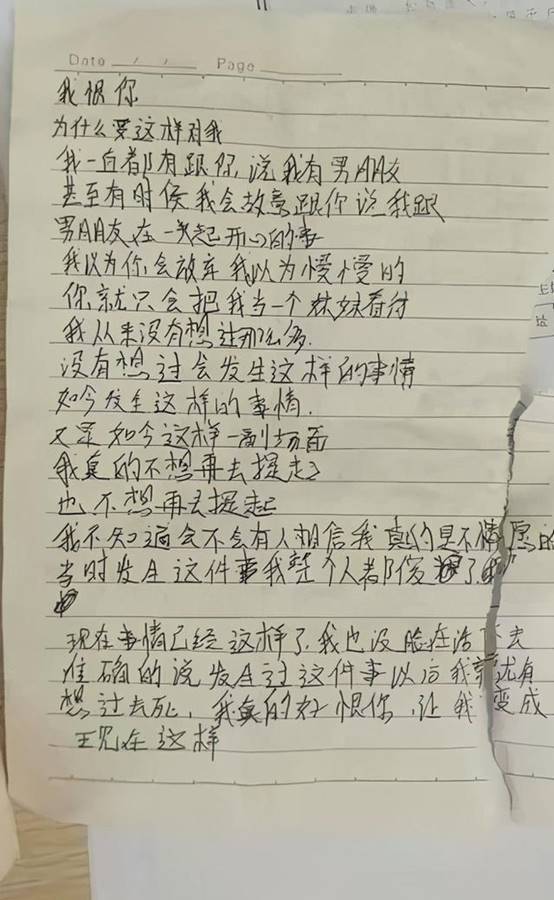 Date / / Page
我恨你
为什么要这样对我
我一直都有跟你说我有男朋友
甚至有时候我会故意跟你说我跟
男朋友在一起开心的事
我以为你会放弃我以为慢慢的
你就只会把我当一个妹妹看待
我从来没有想过那么多.
没有想过会发生这样的事情
如今发生这样的事情.
又是如今这样一副场面
我真的不想再去提起了
也不想再去提起
我不知道会不会有人相信我真的是不情愿的
当时发生这件事我整个人都傻了
现在事情已经这样了.我也没脸在活下去
准确的说发生过这件事以后我就有
想过去死,我真的好恨你,让我变成
现在这样